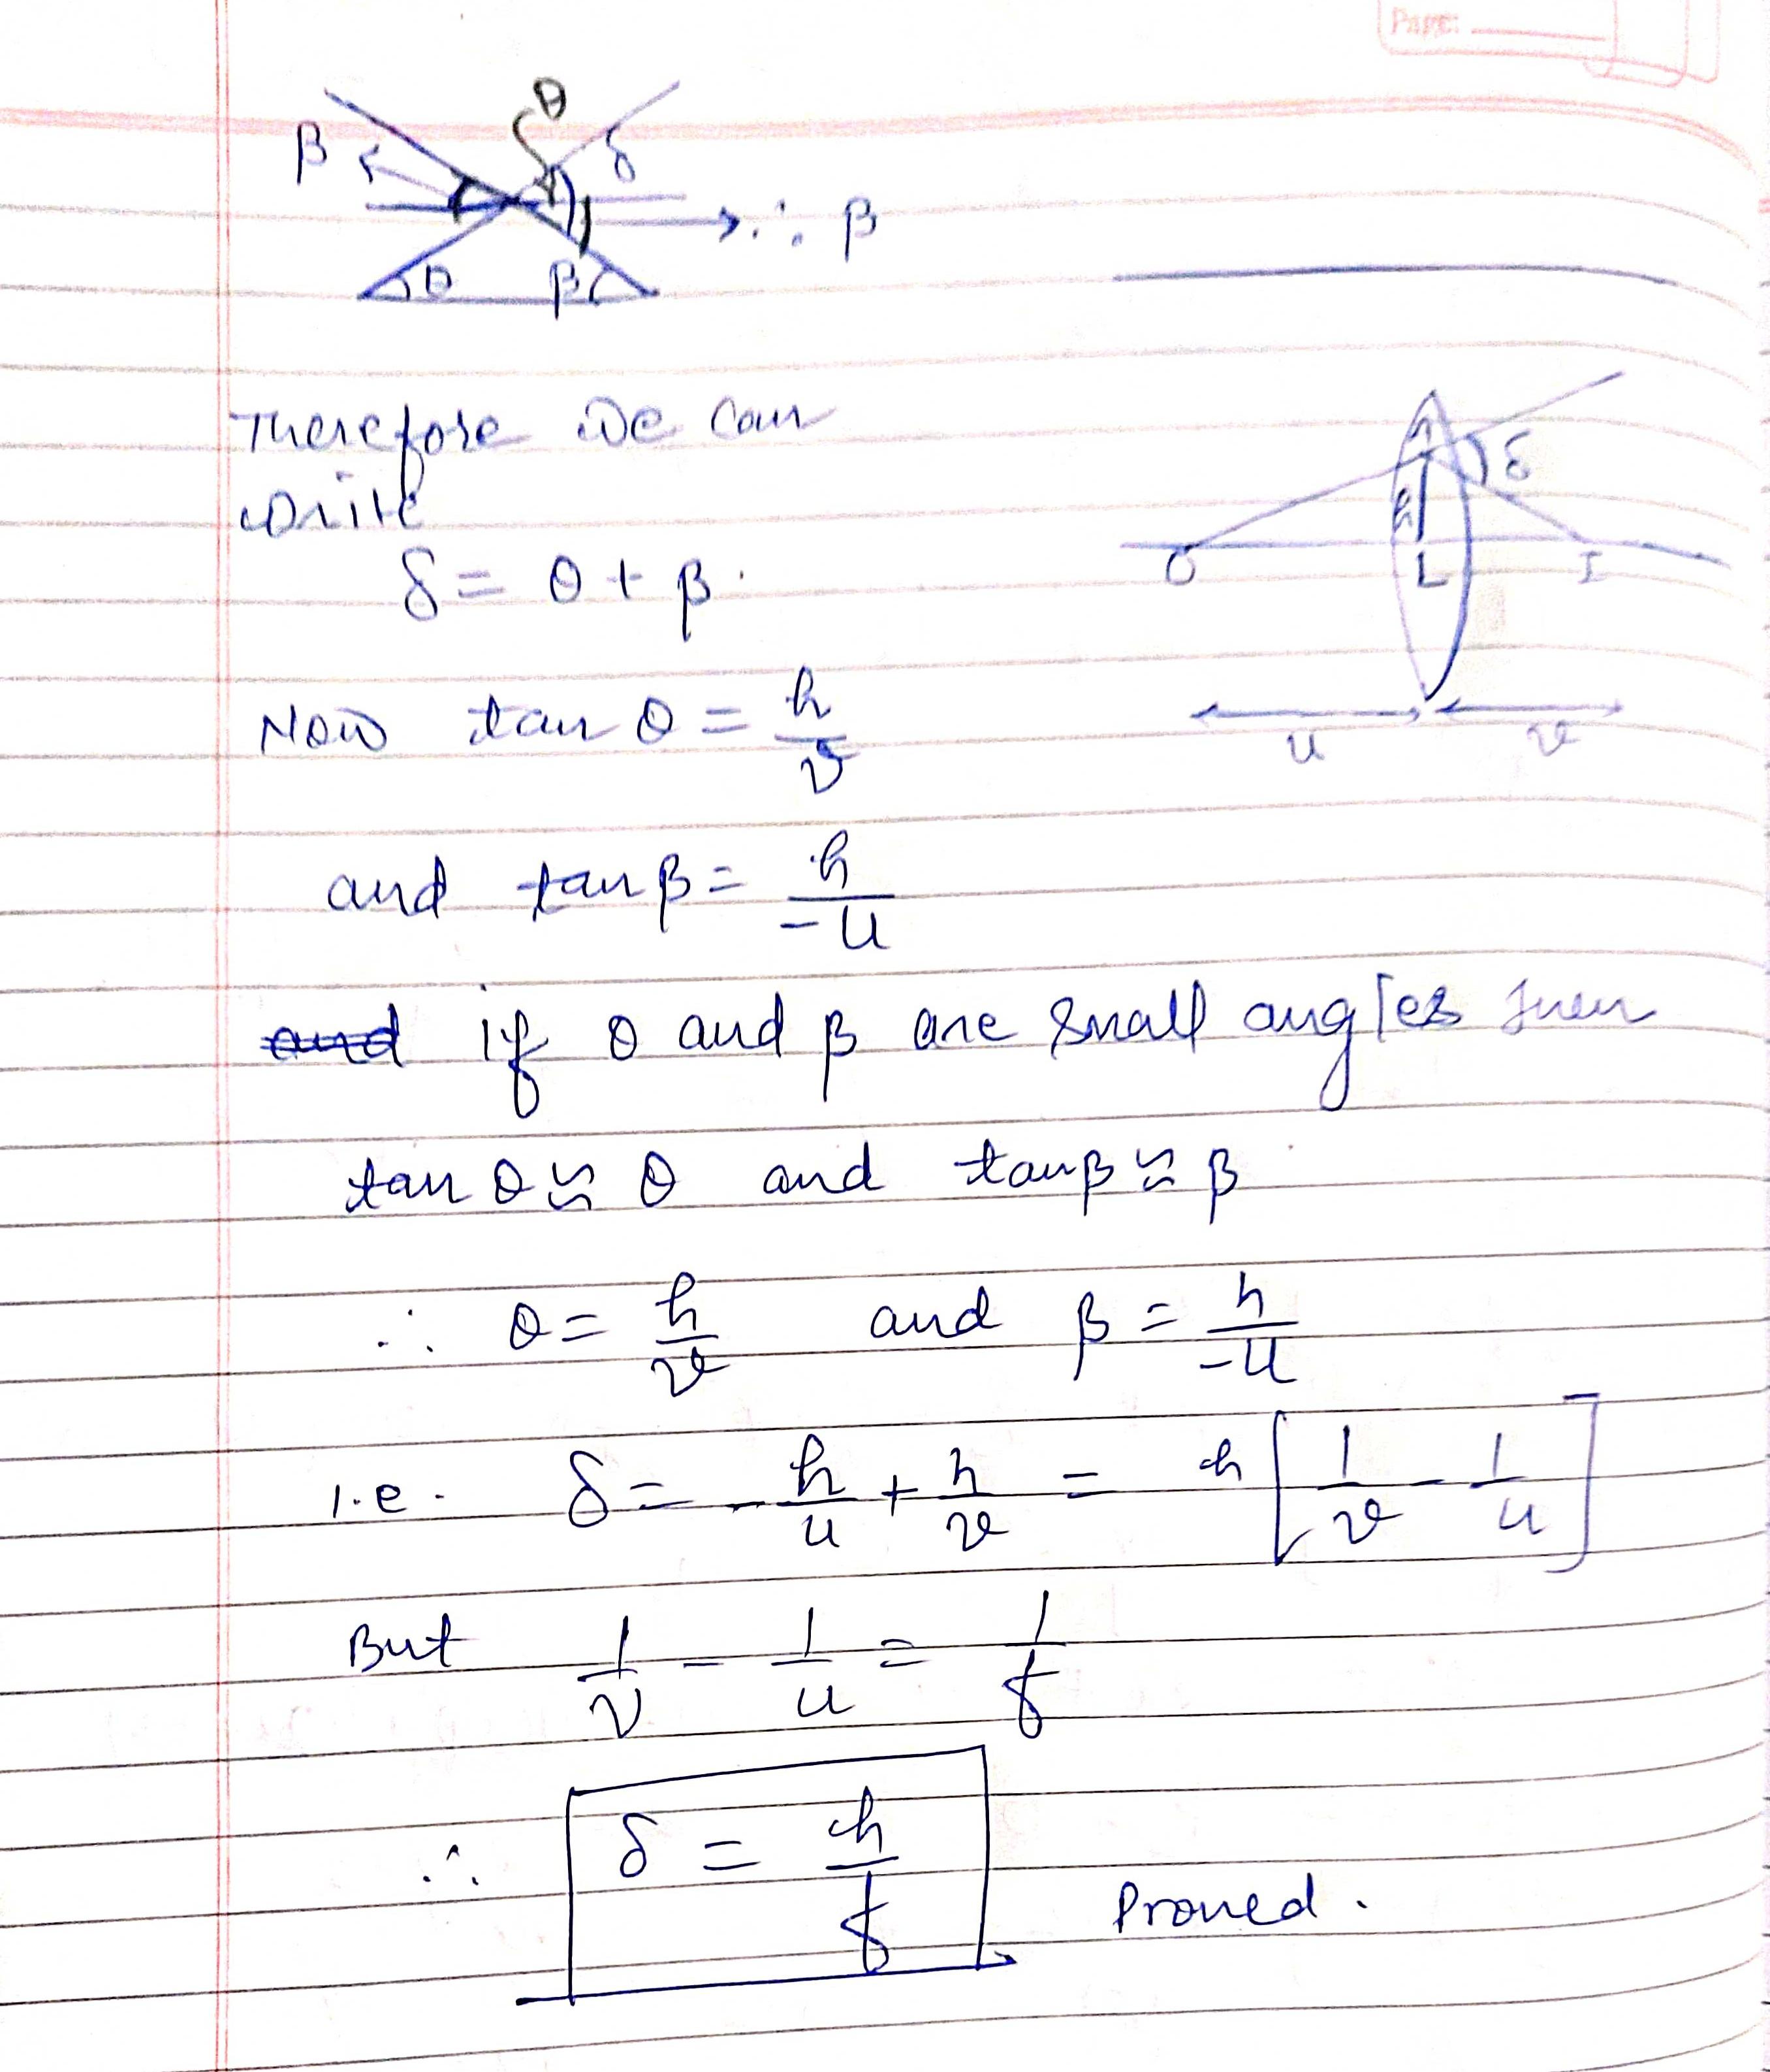 Page:
θ
β δ
∴ β
θ β
Therefore we can
write
δ = θ + β.
h δ
O L I
u v
Now tan θ = h/v
and tan β = h/-u
and if θ and β are small angles then
tan θ ≈ θ and tan β ≈ β
∴ θ = h/v and β = h/-u
i.e. δ = - h/u + h/v = h [1/v - 1/u]
But 1/v - 1/u = 1/f
∴ δ = h/f Proved.